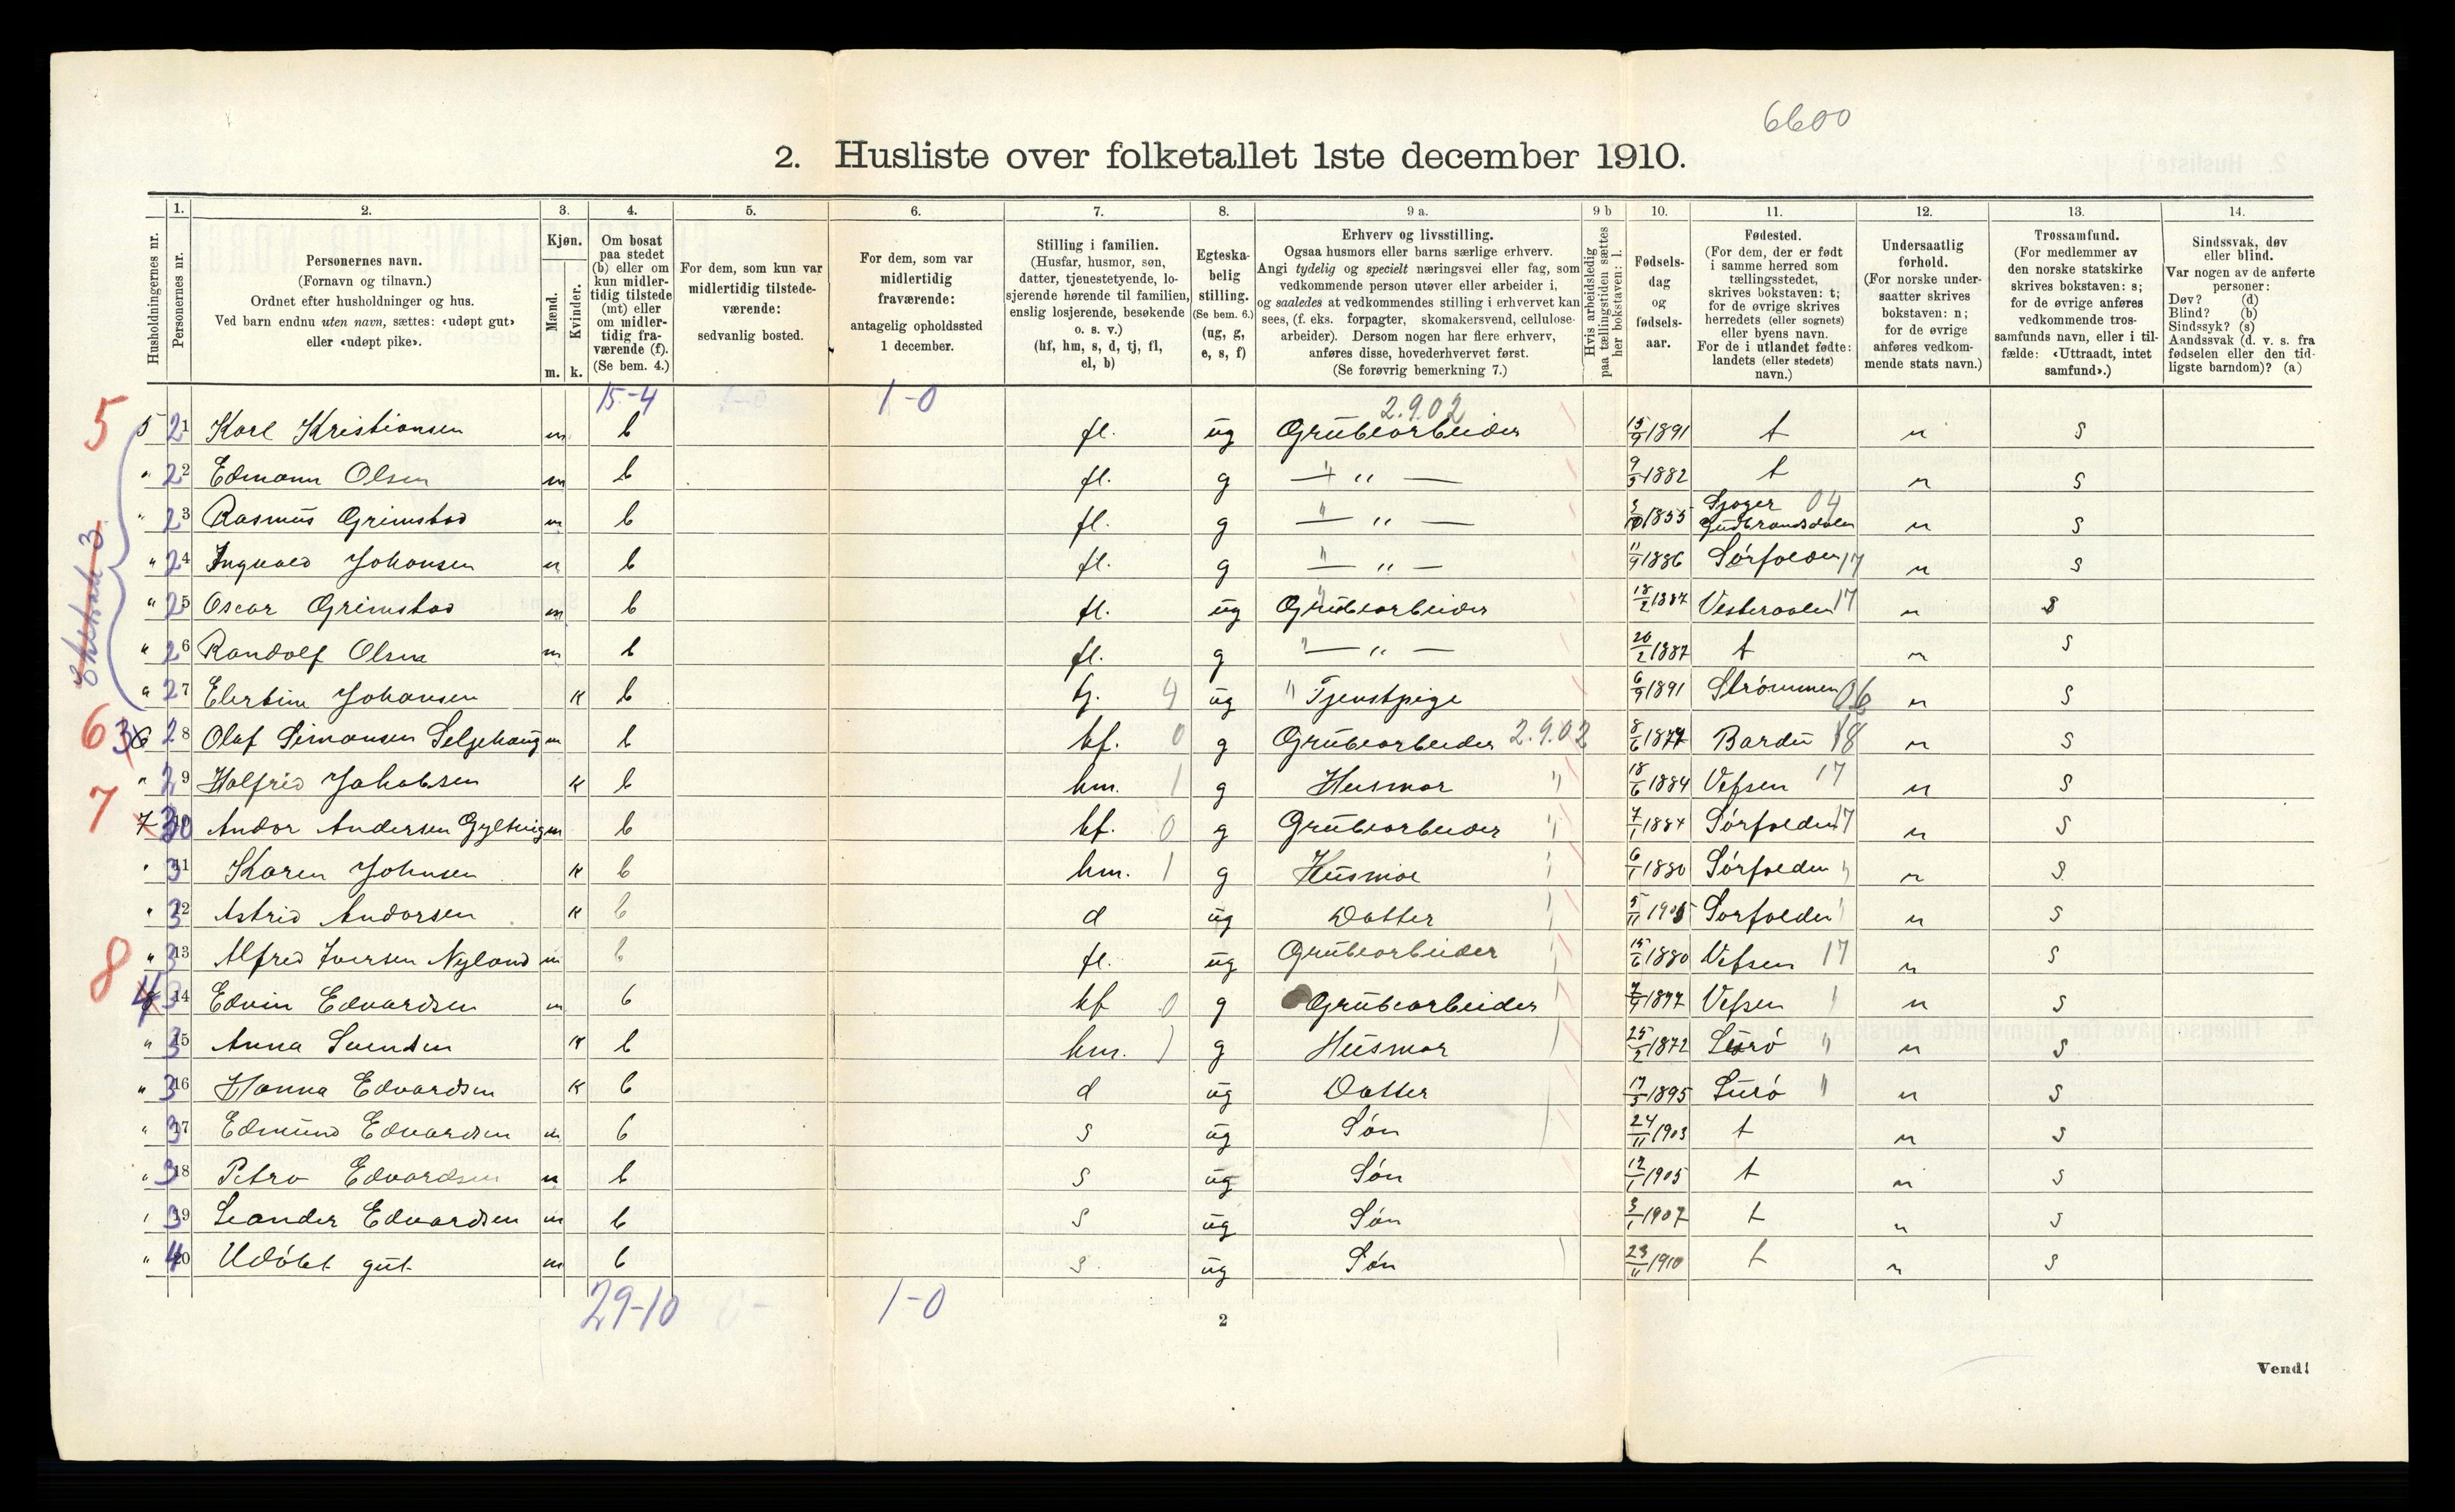 6600
2. Husliste over folketallet 1ste december 1910.
Husholdningernes nr.
1. Personernes nr.
2. Personernes navn. (Fornavn og tilnavn.) Ordnet efter husholdninger og hus. Ved barn endnu uten navn, sættes: «udøpt gut» eller «udøpt pike».
3. Kjøn. Mænd. m. Kvinder. k.
4. Om bosat paa stedet (b) eller om kun midlertidig tilstede (mt) eller om midlertidig fraværende (f). (Se bem. 4.)
5. For dem, som kun var midlertidig tilstedeværende: sedvanlig bosted.
6. For dem, som var midlertidig fraværende: antagelig opholdssted 1 december.
7. Stilling i familien. (Husfar, husmor, søn, datter, tjenestetyende, losjerende hørende til familien, enslig losjerende, besøkende o. s. v.) (hf, hm, s, d, tj, fl, el, b)
8. Egteskabelig stilling. (Se bem. 6.) (ug, g, e, s, f)
9 a. Erhverv og livsstilling. Ogsaa husmors eller barns særlige erhverv. Angi tydelig og specielt næringsvei eller fag, som vedkommende person utøver eller arbeider i, og saaledes at vedkommendes stilling i erhvervet kan sees, (f. eks. forpagter, skomakersvend, cellulosearbeider). Dersom nogen har flere erhverv, anføres disse, hovederhvervet først. (Se forøvrig bemerkning 7.)
9 b Hvis arbeidsledig paa tællingstiden sættes her bokstaven: l.
10. Fødselsdag og fødselsaar.
11. Fødested. (For dem, der er født i samme herred som tællingsstedet, skrives bokstaven: t; for de øvrige skrives herredets (eller sognets) eller byens navn. For de i utlandet fødte: landets (eller stedets) navn.)
12. Undersaatlig forhold. (For norske undersaatter skrives bokstaven: n; for de øvrige anføres vedkommende stats navn.)
13. Trossamfund. (For medlemmer av den norske statskirke skrives bokstaven: s; for de øvrige anføres vedkommende trossamfunds navn, eller i tilfælde: «Uttraadt, intet samfund».)
14. Sindssvak, døv eller blind. Var nogen av de anførte personer: Døv? (d) Blind? (b) Sindssyk? (s) Aandssvak (d. v. s. fra fødselen eller den tidligste barndom)? (a)
15-4 1-0 2.9.02
5 5 21 Karl Kristiansen m b fl. ug Grubearbeider 15/9 1891 t n s
" 22 Edmann Olsen m b fl. g — " — 9/3 1882 t n s
" 23 Rasmus Grimstad m b fl. g — " — 3/10 1855 Gudbrandsdalen 04 n s
" 24 Ingvald Johansen m b fl. g — " — 11/9 1886 Sørfolden 17 n s
" 25 Oscar Grimstad m b fl. ug Grubearbeider 18/2 1887 Vesteraalen 17 n s
" 26 Randolf Olsen m b fl. g — " — 20/2 1887 t n s
" 27 Elertine Johansen k b tj. 4 ug Tjenstpige 6/9 1891 Strømmen 06 n s
6 3 28 Olaf Simonsen Seljehaug m b hf. 0 g Grubearbeider 2.9.02 8/6 1877 Bardu 18 n s
" 29 Halfrid Jakobsen k b hm. 1 g Husmor " 18/6 1884 Vefsen 17 n s
7 7 30 Andor Andersen Gyltvig m b hf. 0 g Grubearbeider " 7/1 1884 Sørfolden 17 n s
" 31 Karen Johnsen k b hm. 1 g Husmor " 6/1 1880 Sørfolden " n s
" 32 Astrid Andorsen k b d ug Datter 5/11 1905 Sørfolden n s
" 33 Alfred Iversen Nyland m b fl. ug Grubearbeider 15/6 1880 Vefsen 17 n s
8 4 34 Edvin Edvardsen m b hf 0 g Grubearbeider 7/9 1877 Vefsen n s
" 35 Anna Svendsen k b hm. 1 g Husmor 25/2 1872 Lurø " n s
" 36 Hanna Edvardsen k b d ug Datter 17/3 1895 Lurø " n s
" 37 Edmund Edvardsen m b s ug Søn 24/11 1903 t n s
" 38 Petro Edvardsen m b s ug Søn 12/1 1905 t n s
" 39 Leander Edvardsen m b s ug Søn 3/1 1907 t n s
" 40 Udøbt gut m b s ug Søn 23/11 1910 t n s
29-10 1-0
2
Vend!